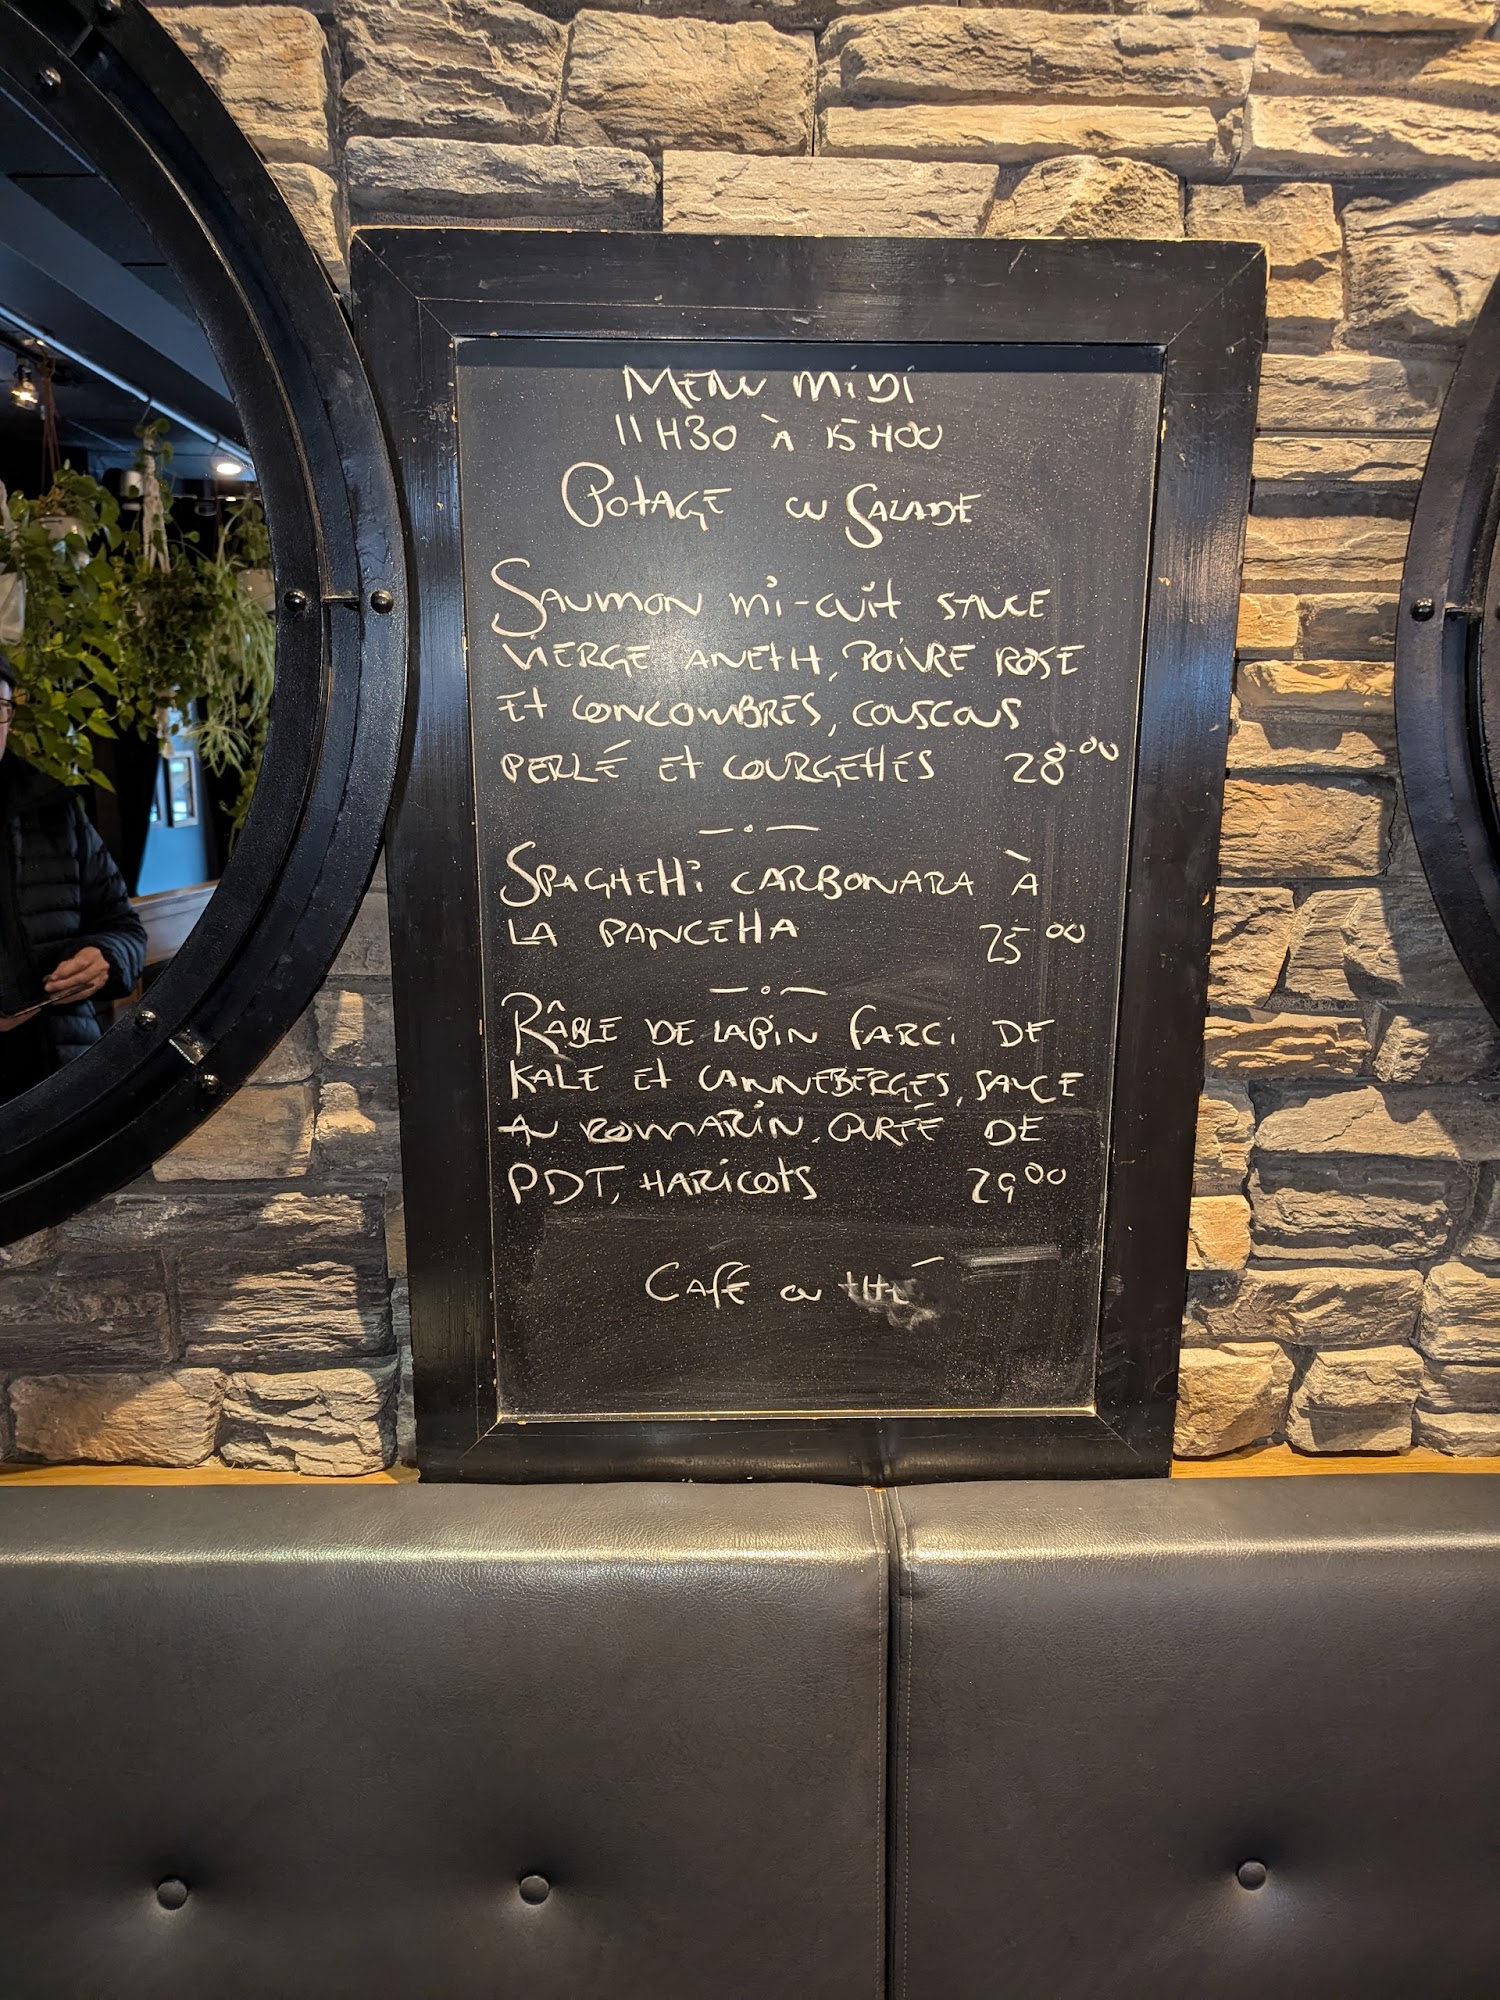 MENU MIDI
11H30 À 15H00
POTAGE OU SALADE
SAUMON MI-CUIT SAUCE
VIERGE ANETH, POIVRE ROSE
ET CONCOMBRES, COUSCOUS
PERLÉ ET COURGETTES 28.00
SPAGHETTI CARBONARA À
LA PANCETTA 25 00
RÂBLE DE LAPIN FARCI DE
KALE ET CANNEBERGES, SAUCE
AU ROMARIN, PURÉE DE
PDT, HARICOTS 29 00
CAFÉ OU THÉ